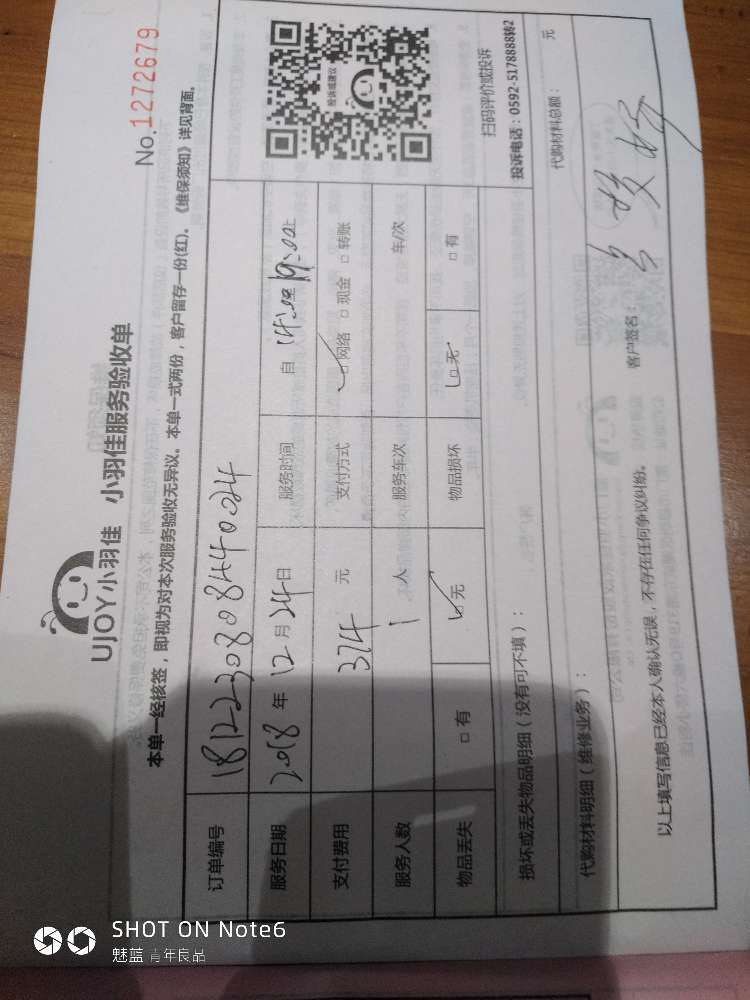 UJOY小羽佳 小羽佳服务验收单
No.1272679
本单一经核签，即视为对本次服务验收无异议。本单一式两份，客户留存一份(红)。《维保须知》详见背面。
订单编号 18122308084402024
服务日期 2018年12月24日 服务时间 自14:00至19:00止
支付费用 374元 支付方式 □网络 □现金 □转账
服务人数 1人 服务车次 车/次
物品丢失 □有 □无 物品损坏 □无 □有
投诉或建议
扫码评价或投诉
投诉电话：0592-5178888转2
损坏或丢失物品明细（没有可不填）：
代购材料明细（维修业务）： 代购材料总额： 元
以上填写信息已经本人确认无误，不存在任何争议纠纷。 客户签名：
SHOT ON Note6
魅蓝 青年良品